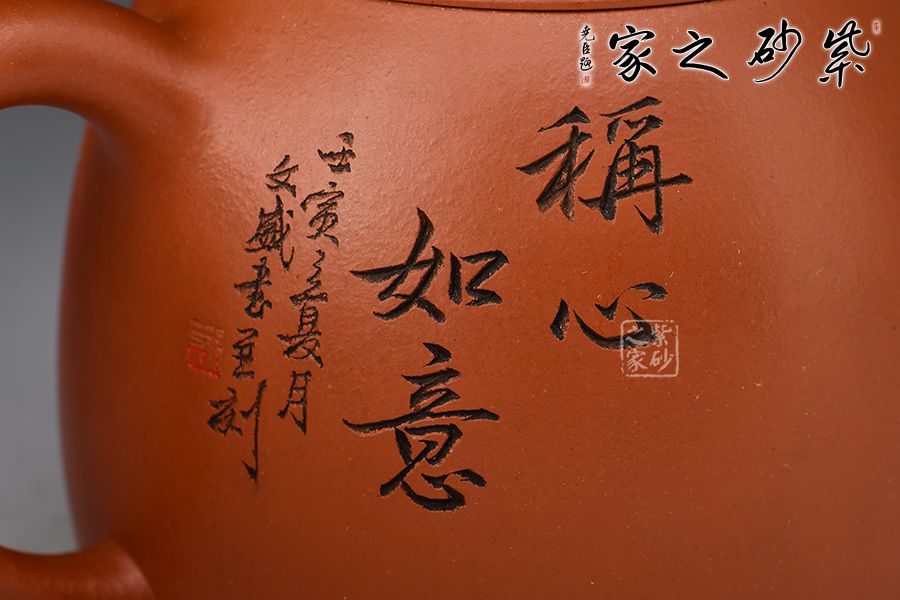 稱心
如意
壬寅孟夏月
文盛書並刻
紫砂之家
堯臣題
紫砂之家